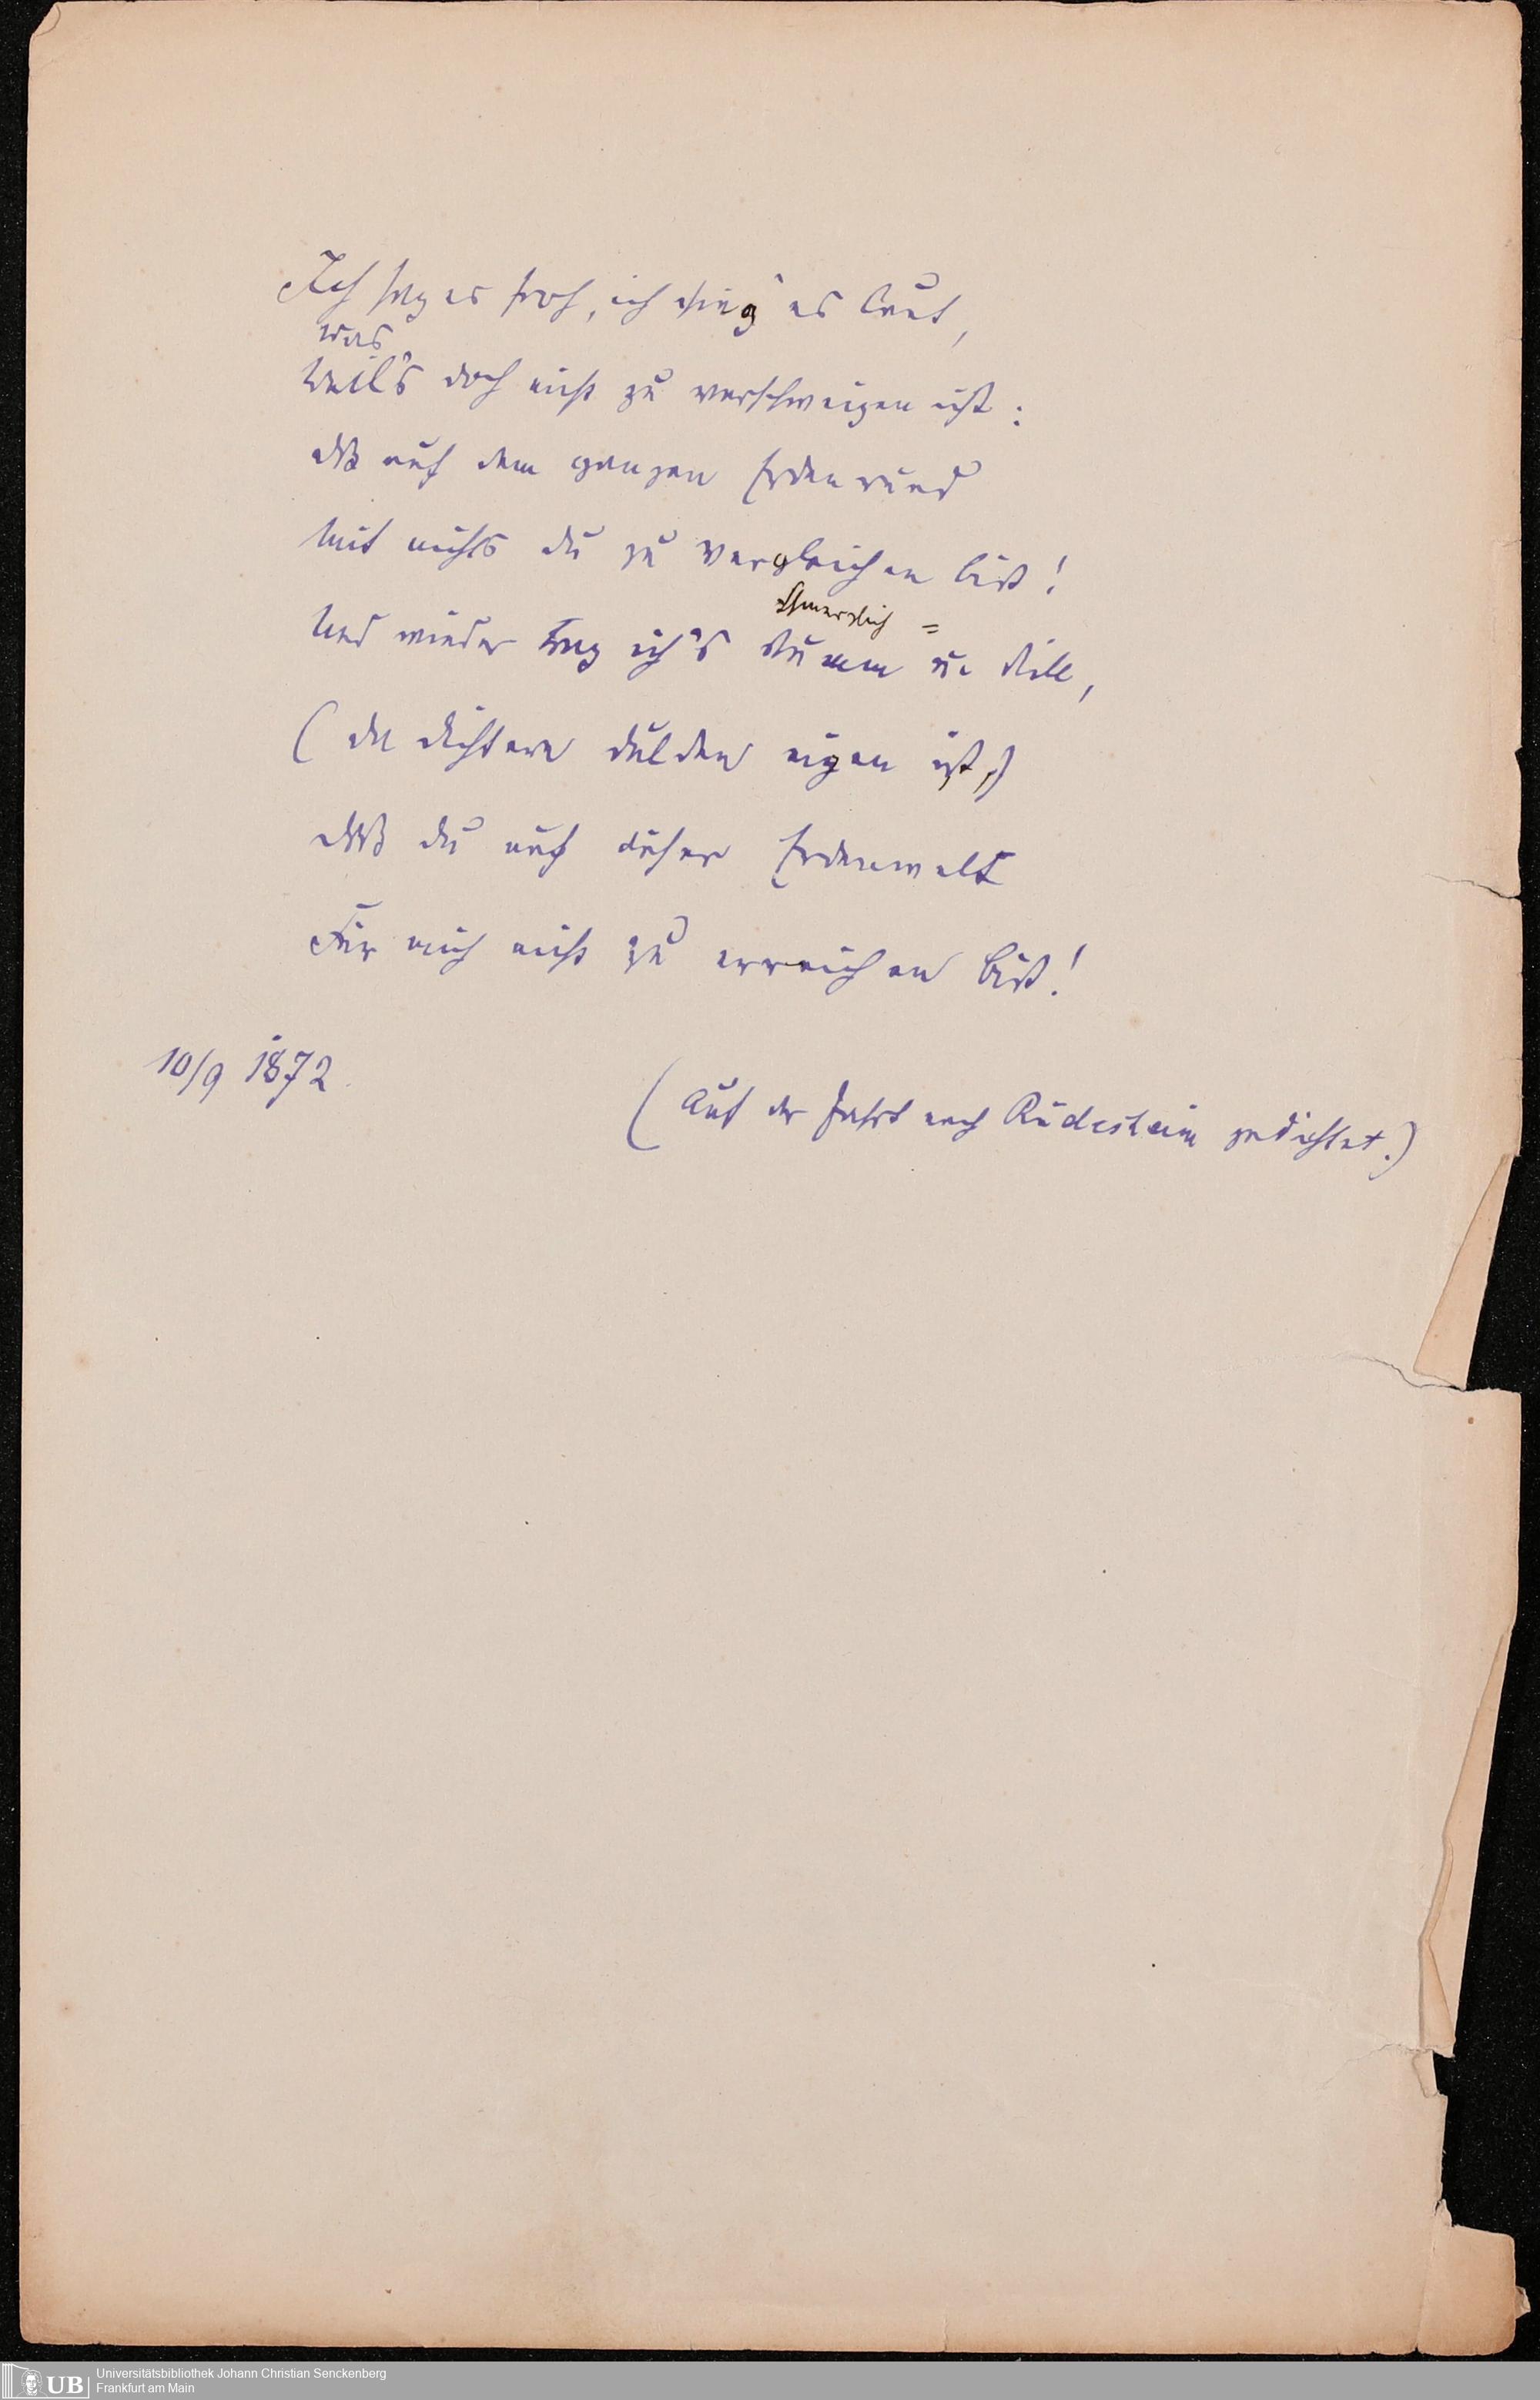 Ich sag es froh, ich sing' es laut,
was
Weil's doch nicht zu verschweigen ist:
daß auf dem ganzen Erdenrund
Mit nichts du zu vergleichen bist!
schmerzlich =
Und wieder trag ich's stumm u. still,
(da Dichtern dulden eigen ist,)
daß du auf dieser Erdenwelt
Für mich nicht zu erreichen bist!
10/9 1872.
(Auf der Fahrt nach Rüdesheim gedichtet.)
UB
Universitätsbibliothek Johann Christian Senckenberg
Frankfurt am Main